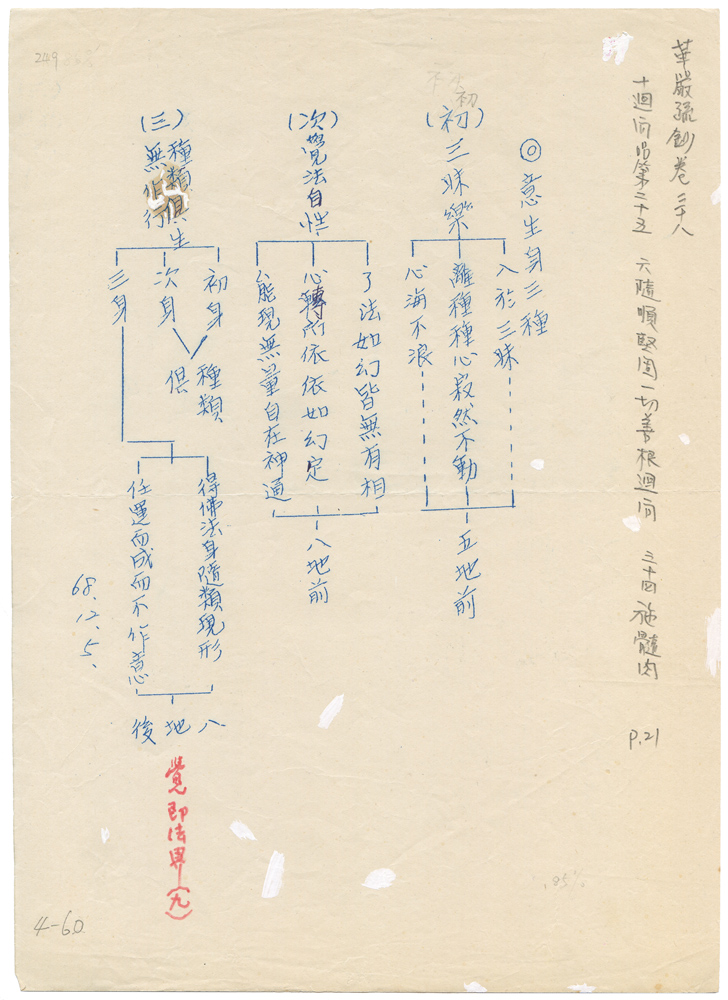 華嚴疏鈔卷三十八
十迴向品第二十五 六隨順堅固一切善根迴向 三十四施髓肉 P.21
◎意生身三種
(初)三昧樂
入於三昧
離種種心寂然不動
心海不浪
五地前
(次)覺法自性
了法如幻皆無有相
心轉所依依如幻定
能現無量自在神通
八地前
(三)種類俱生
無作行
初身
次身
種類
俱
三身
得佛法身隨類現形
任運而成而不作意
八地後
68.12.5.
覺即法界(九)
初
249
4-60